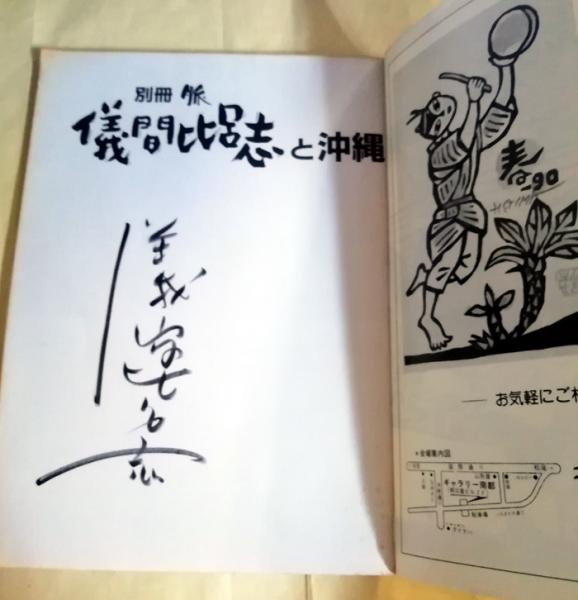 別冊 脈
儀間比呂志と沖縄
儀間比呂志
春
90
お気軽にご相
会場案内図
ギャラリー南都
駐車場